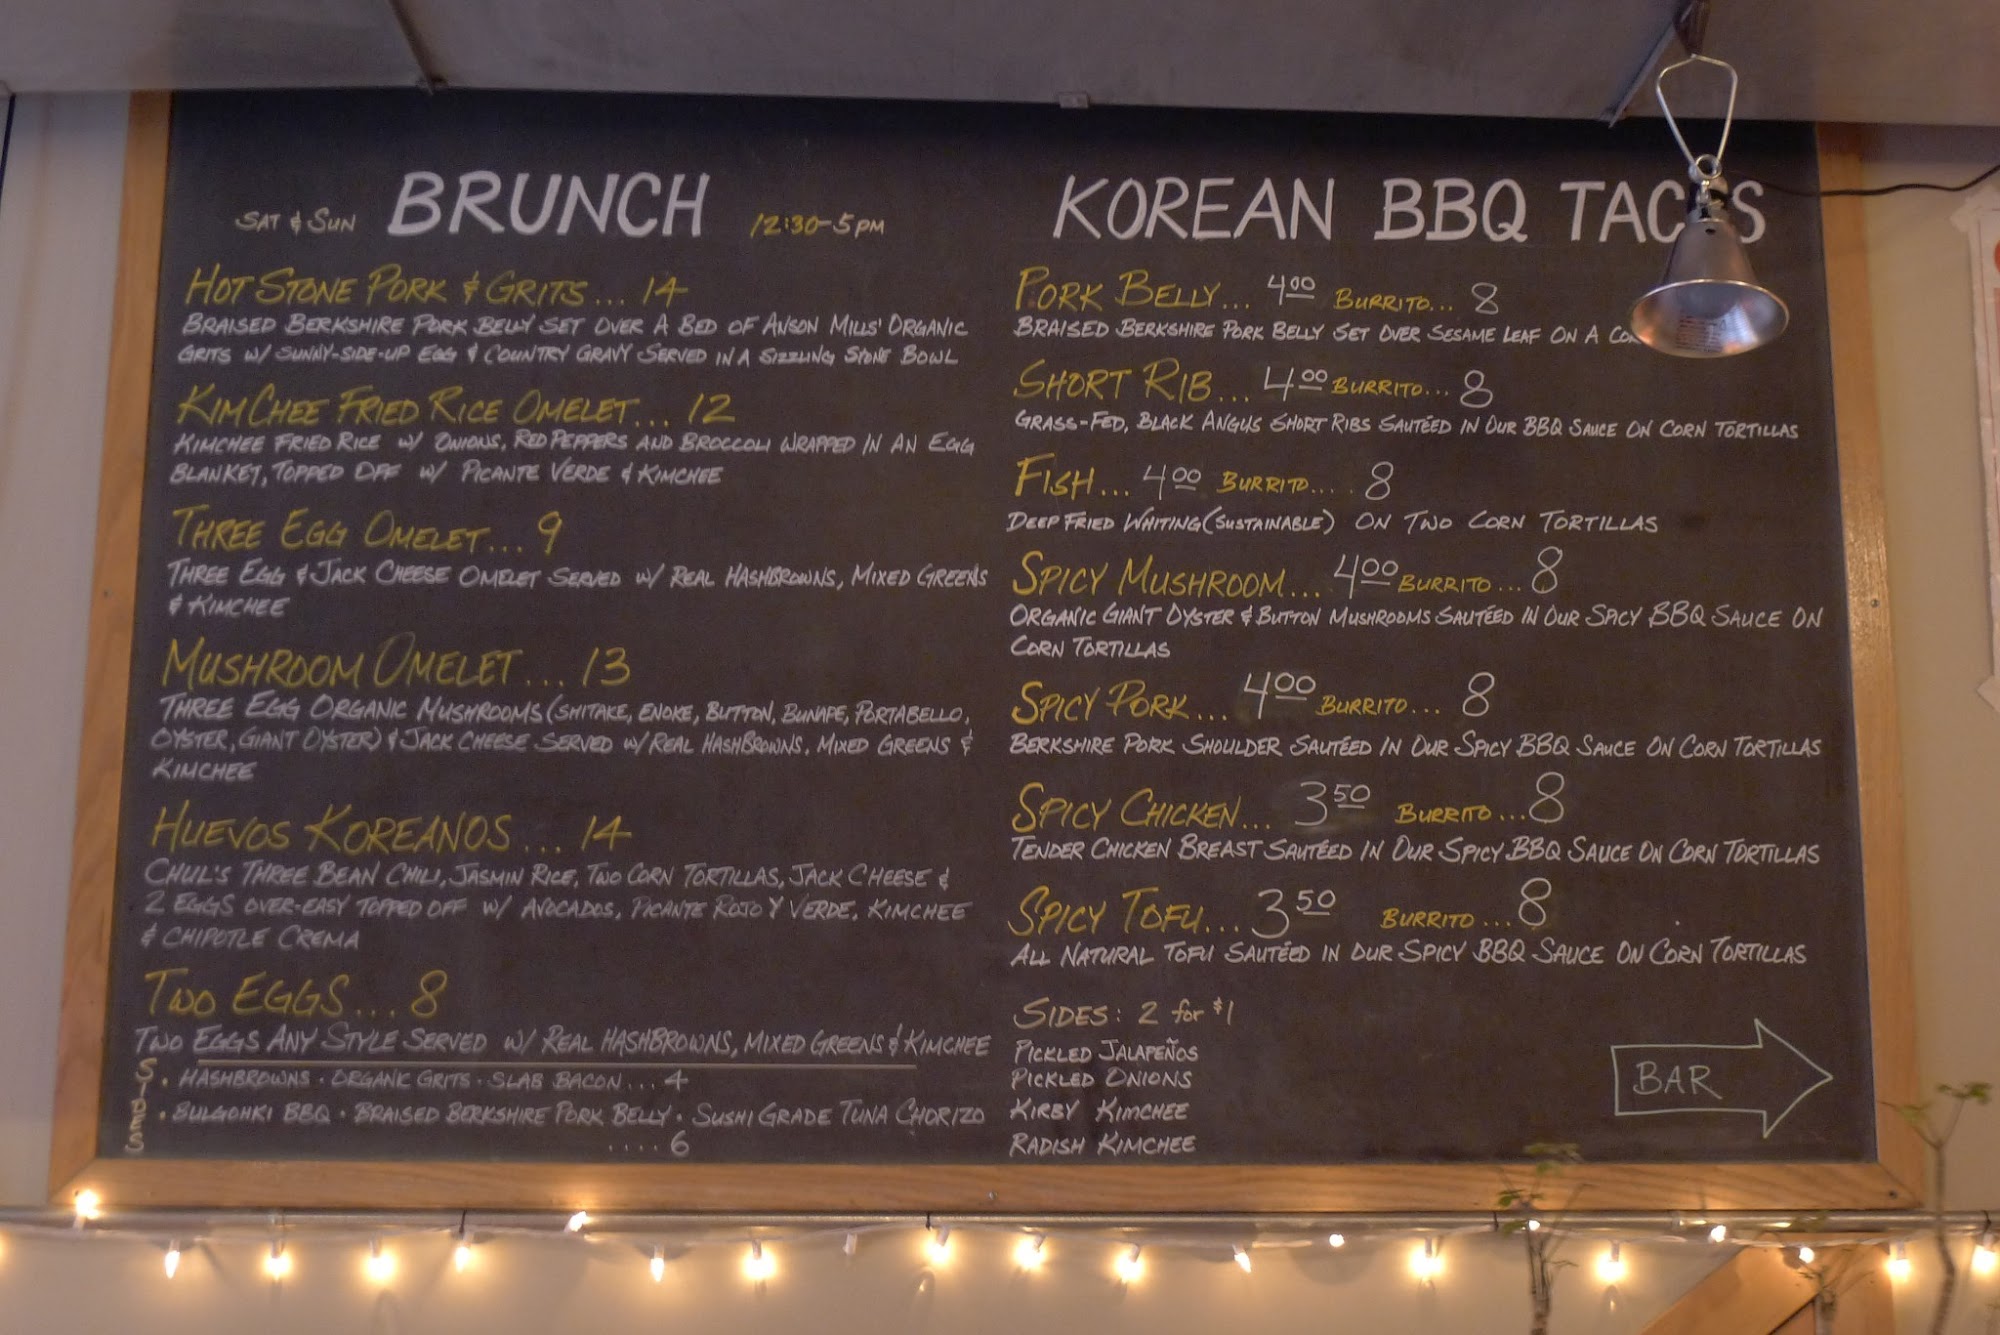 SAT & SUN BRUNCH 12:30-5PM
HOT STONE PORK & GRITS... 14
BRAISED BERKSHIRE PORK BELLY SET OVER A BED OF ANSON MILLS' ORGANIC
GRITS W/ SUNNY-SIDE-UP EGG & COUNTRY GRAVY SERVED IN A SIZZLING STONE BOWL
KIMCHEE FRIED RICE OMELET... 12
KIMCHEE FRIED RICE W/ ONIONS, RED PEPPERS AND BROCCOLI WRAPPED IN AN EGG
BLANKET, TOPPED OFF W/ PICANTE VERDE & KIMCHEE
THREE EGG OMELET... 9
THREE EGG & JACK CHEESE OMELET SERVED W/ REAL HASHBROWNS, MIXED GREENS
& KIMCHEE
MUSHROOM OMELET... 13
THREE EGG ORGANIC MUSHROOMS (SHITAKE, ENOKE, BUTTON, BUNAPE, PORTABELLO,
OYSTER, GIANT OYSTER) & JACK CHEESE SERVED W/ REAL HASHBROWNS, MIXED GREENS &
KIMCHEE
HUEVOS KOREANOS... 14
CHUL'S THREE BEAN CHILI, JASMIN RICE, TWO CORN TORTILLAS, JACK CHEESE &
2 EGGS OVER-EASY TOPPED OFF W/ AVOCADOS, PICANTE ROJO Y VERDE, KIMCHEE
& CHIPOTLE CREMA
TWO EGGS... 8
TWO EGGS ANY STYLE SERVED W/ REAL HASHBROWNS, MIXED GREENS & KIMCHEE
SIDES
• HASHBROWNS • ORGANIC GRITS • SLAB BACON... 4
• BULGOHKI BBQ • BRAISED BERKSHIRE PORK BELLY • SUSHI GRADE TUNA CHORIZO
.... 6
KOREAN BBQ TACOS
PORK BELLY... 4.00 BURRITO... 8
BRAISED BERKSHIRE PORK BELLY SET OVER SESAME LEAF ON A
SHORT RIB... 4.00 BURRITO... 8
GRASS-FED, BLACK ANGUS SHORT RIBS SAUTÉED IN OUR BBQ SAUCE ON CORN TORTILLAS
FISH... 4.00 BURRITO.... 8
DEEP FRIED WHITING (SUSTAINABLE) ON TWO CORN TORTILLAS
SPICY MUSHROOM... 4.00 BURRITO... 8
ORGANIC GIANT OYSTER & BUTTON MUSHROOMS SAUTÉED IN OUR SPICY BBQ SAUCE ON
CORN TORTILLAS
SPICY PORK... 4.00 BURRITO... 8
BERKSHIRE PORK SHOULDER SAUTÉED IN OUR SPICY BBQ SAUCE ON CORN TORTILLAS
SPICY CHICKEN... 3.50 BURRITO... 8
TENDER CHICKEN BREAST SAUTÉED IN OUR SPICY BBQ SAUCE ON CORN TORTILLAS
SPICY TOFU... 3.50 BURRITO... 8
ALL NATURAL TOFU SAUTÉED IN OUR SPICY BBQ SAUCE ON CORN TORTILLAS
SIDES: 2 for $1
PICKLED JALAPEÑOS
PICKLED ONIONS
KIRBY KIMCHEE
RADISH KIMCHEE
BAR